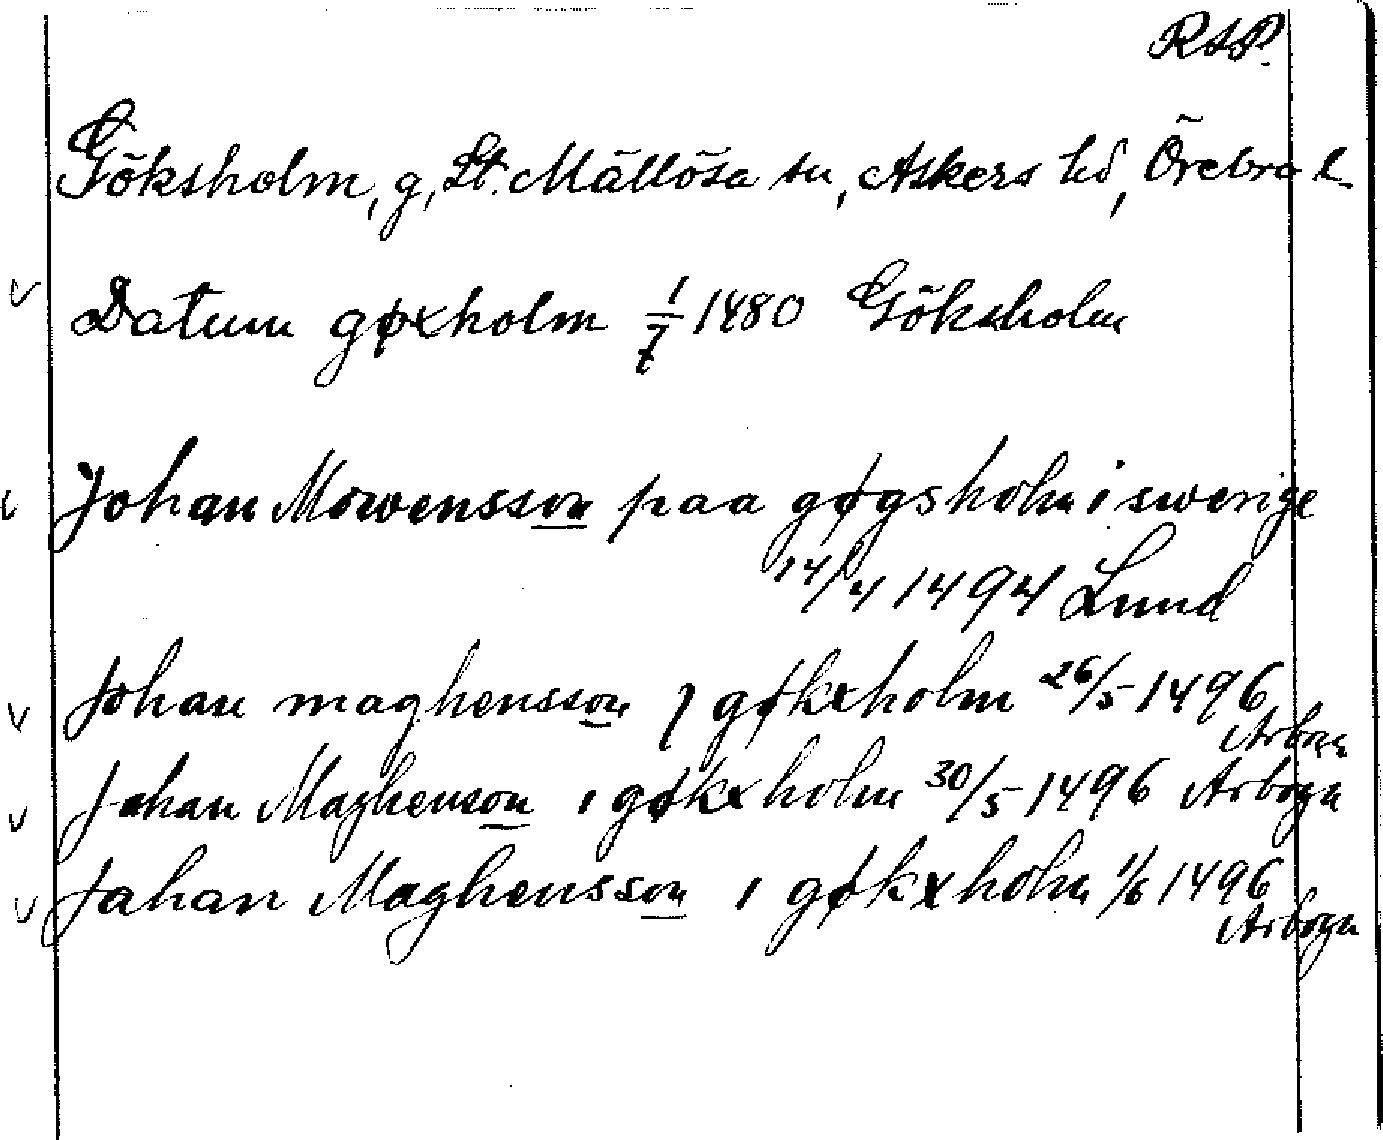 RAP.
Göksholm, g, St. Mällösa sn, Askers hd, Örebro l.
Datum gøxholm 1/7 1480 Göksholm
Johan Mowensson paa gøgsholm i swerige
14/4 1494 Lund
Johan maghensson j gøkxholm 26/5 1496
Arboga
Johan Maghenson i gøkxholm 30/5 1496 Arboga
Jahan Maghensson i gøkxholm 1/6 1496
Arboga